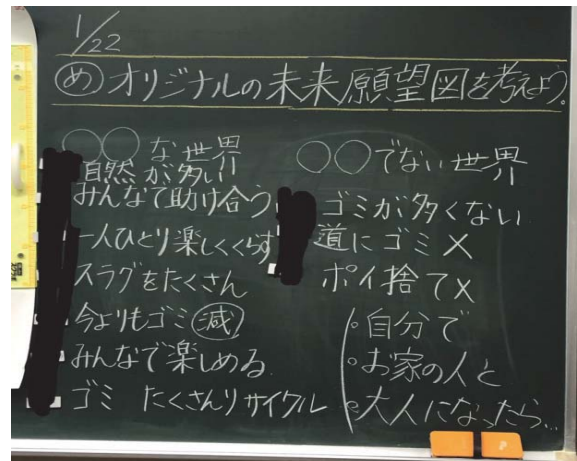 1/22
め オリジナルの未来願望図を考えよう。
○○な世界
自然が多い
みんなで助け合う
一人ひとり楽しくくらす
スラグをたくさん
今よりもゴミ減
みんなで楽しめる
ゴミ たくさんリサイクル
○○でない世界
ゴミが多くない
道にゴミ×
ポイ捨て×
・自分で
・お家の人と
・大人になったら…